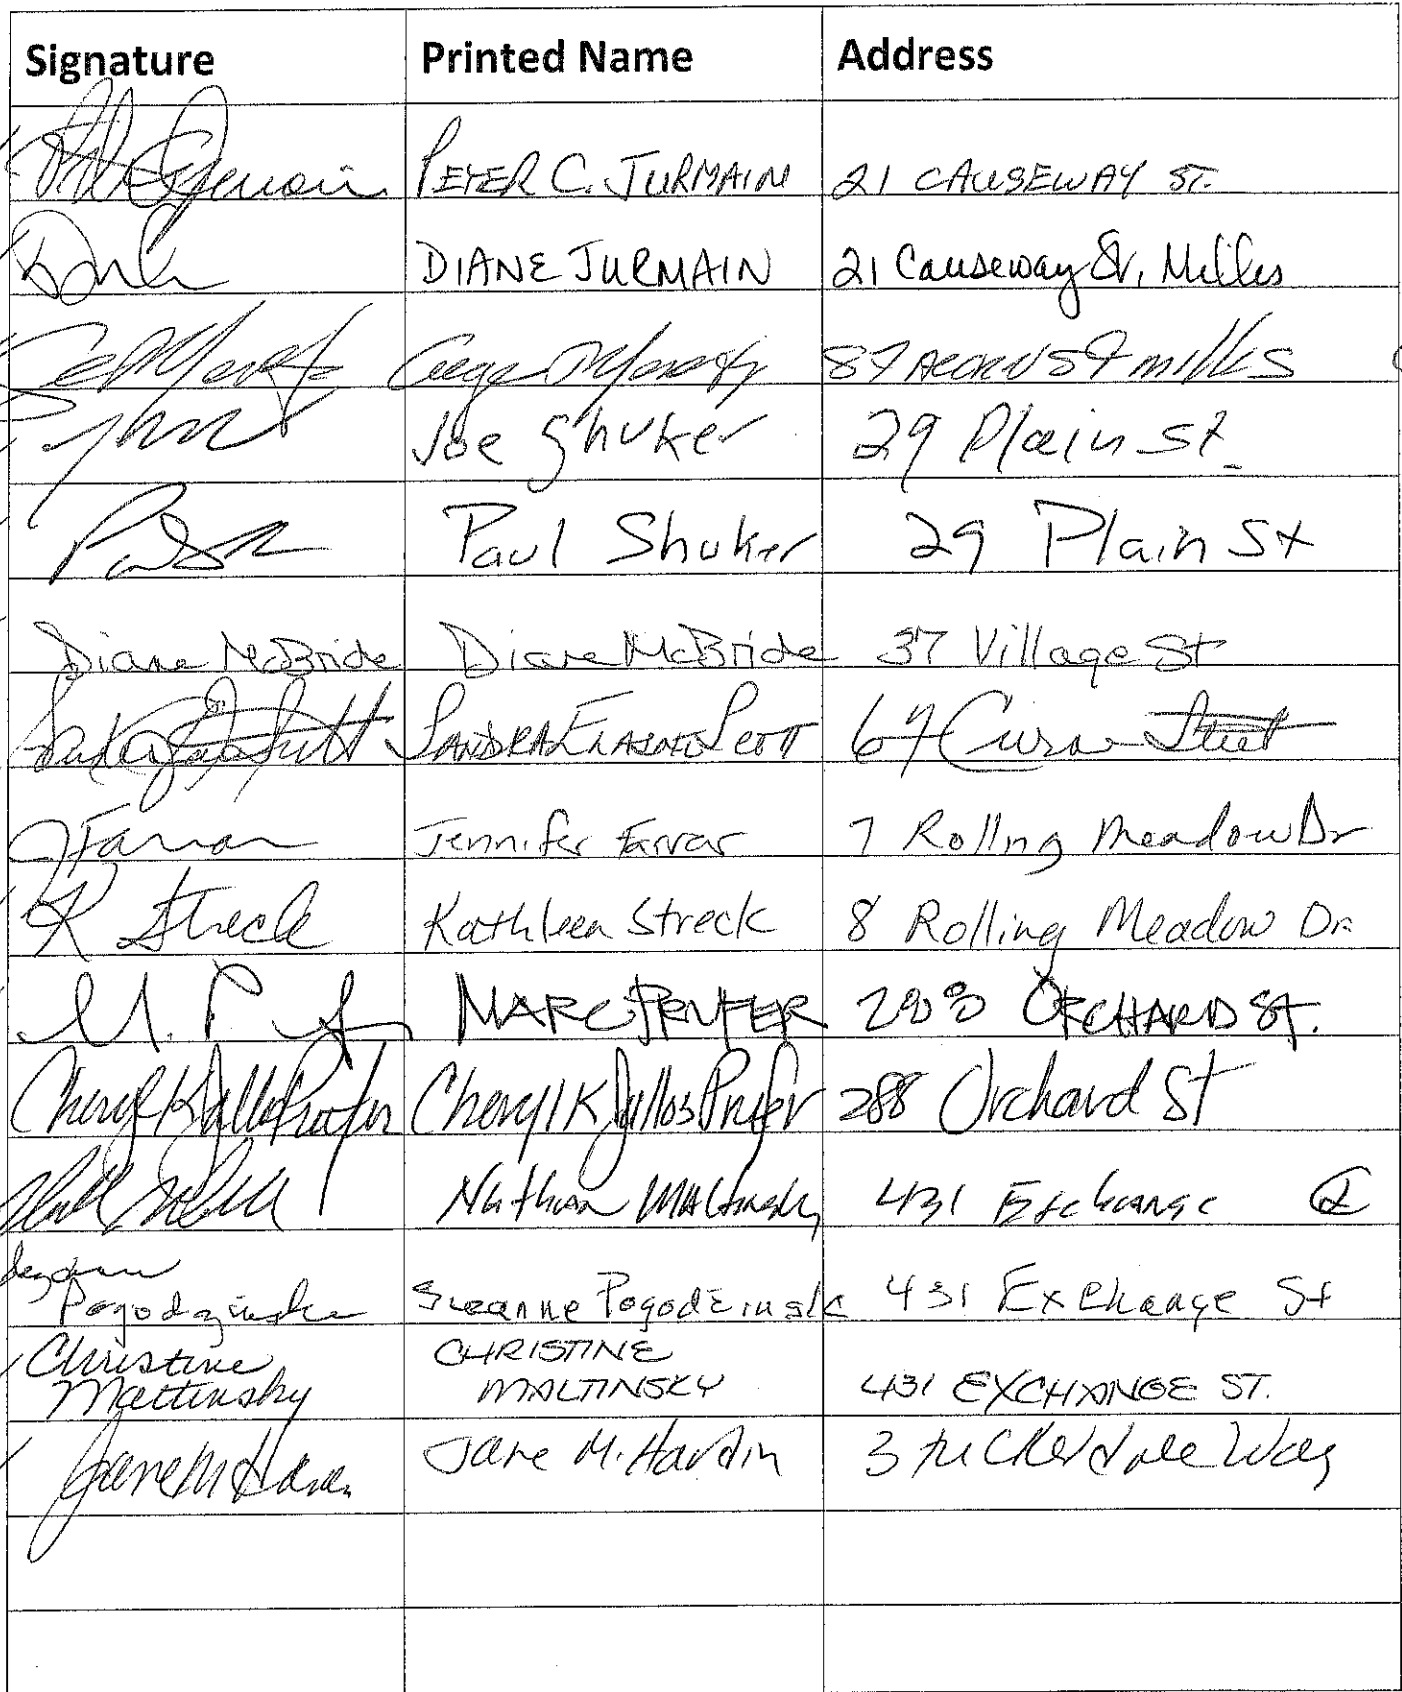 Signature Printed Name Address
PETER C. JURMAIN 21 CAUSEWAY ST.
DIANE JURMAIN 21 Causeway St, Millis
87 ACORN ST millis
Joe Shuker 29 Plain St.
Paul Shuker 29 Plain St
Diane McBride Diane McBride 37 Village St
SANDRA SCOTT 67 Street
JFarrar Jennifer Farrar 7 Rolling Meadow Dr
K Streck Kathleen Streck 8 Rolling Meadow Dr.
MARC PRUFER 288 ORCHARD ST.
Cheryl K Cheryl K Prufer 288 Orchard St
Nathan Maltinsky 431 Exchange
Pogodzinski Suzanne Pogodzinski 431 Exchange St
Christine CHRISTINE
Maltinsky MALTINSKY 431 EXCHANGE ST.
Jane M Hardin Jane M. Hardin 3 Tuckerdale Way